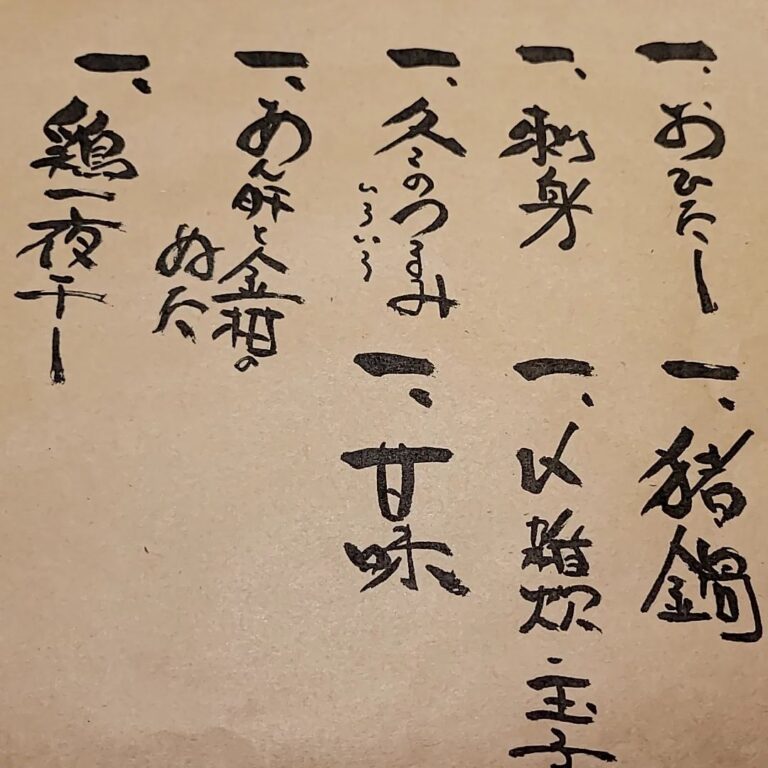 一、おひたし
一、刺身
一、冬のつまみ
いろいろ
一、あん肝と金柑の
ぬた
一、鶏一夜干し
一、猪鍋
一、〆雑炊・玉子
一、甘味